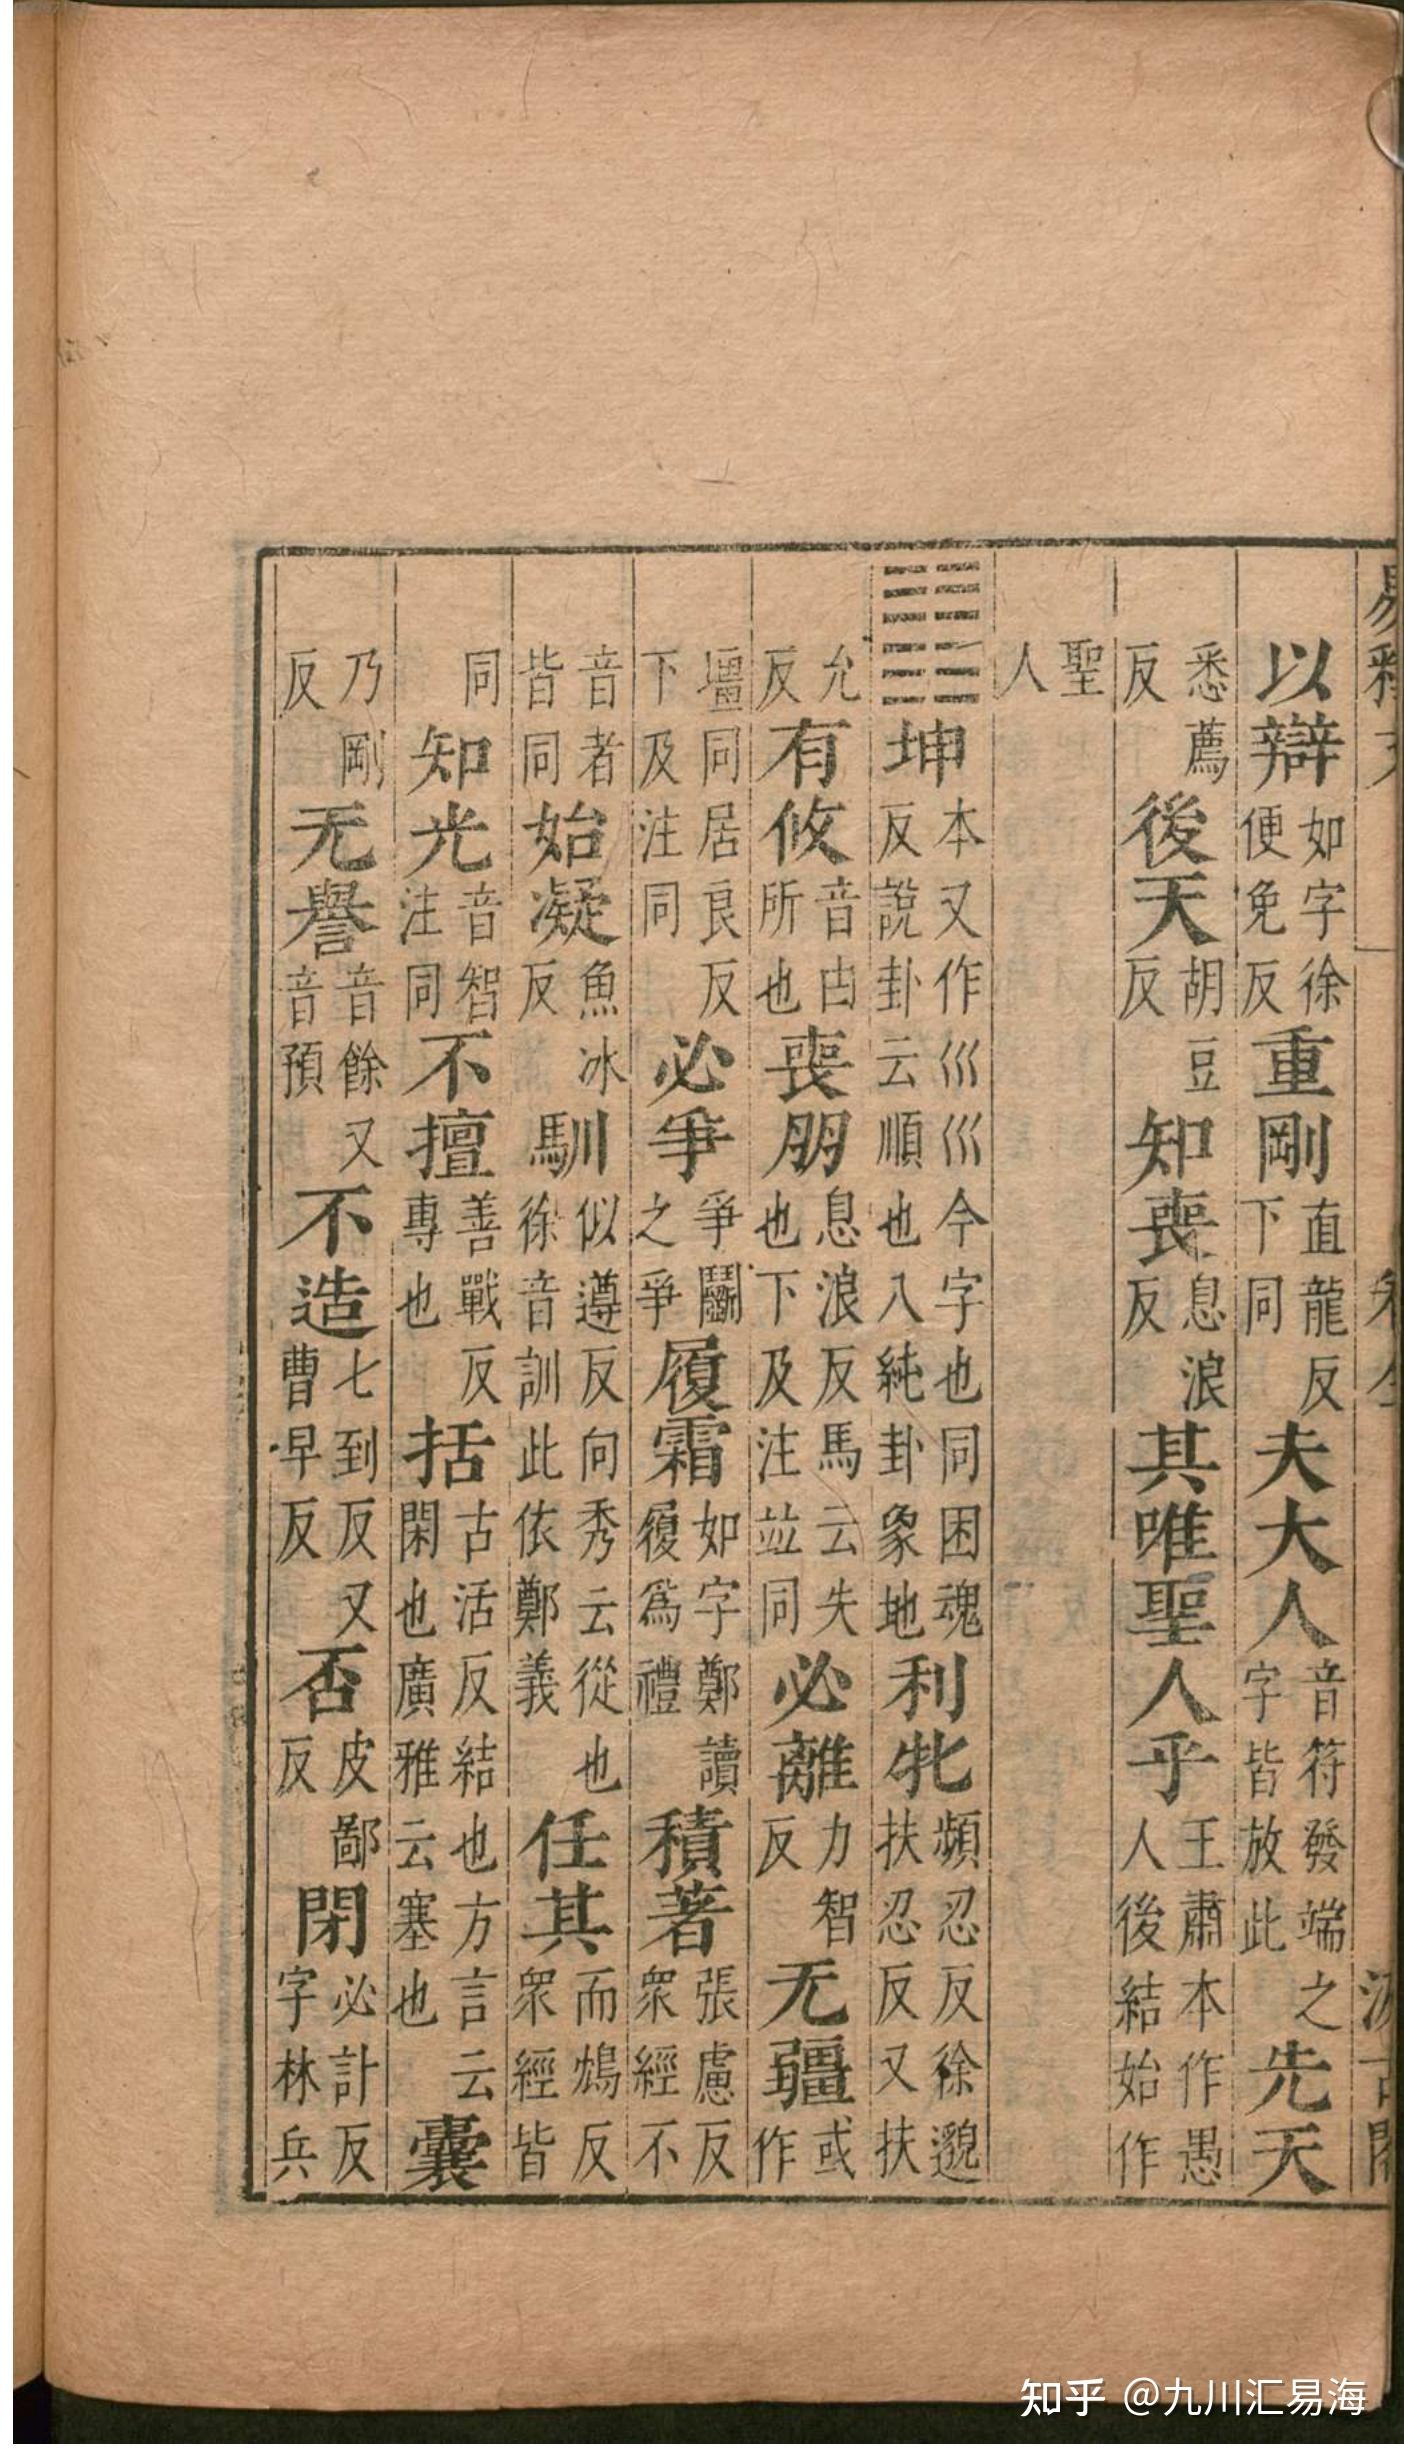 易釋文 一 卷全 汲古閣
以辯如字徐便免反重剛直龍反下同夫大人音符發端之字皆放此先天
悉薦反後天胡豆反知喪息浪反其唯聖人乎王肅本作愚人後結始作
聖人
䷁坤本又作巛巛今字也同困魂反說卦云順也八純卦象地利牝頻忍反徐邈扶忍反又扶
允反有攸音由所也喪朋息浪反馬云失也下及注並同必離力智反无疆或作
壃同居良反下及注同必爭爭鬭之爭履霜如字鄭讀履爲禮積著張慮反眾經不
音者皆同始凝魚冰反馴似遵反向秀云從也徐音訓此依鄭義任其而鴆反眾經皆
同知光音智注同不擅善戰反專也括古活反結也方言云閑也廣雅云塞也囊
乃剛反无譽音餘又音預不造七到反又曹早反否皮鄙反閉必計反字林兵
知乎 @九川汇易海